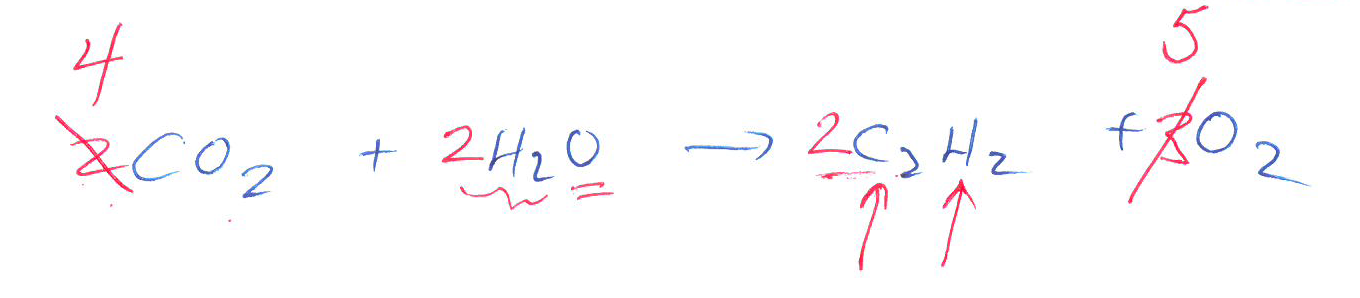 4 5
2CO2 + 2H2O → 2C2H2 + 3O2